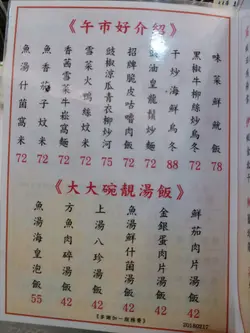 《午市好介紹》
味菜鮮魷飯 78
黑椒牛柳絲炒烏冬 72
干炒海鮮烏冬 88
豉油皇龍鬚炒麵 72
招牌脆皮咕嚕肉飯 72
豉椒涼瓜青衣柳炒河 75
雪菜火鴨絲炆米 72
香茜雪菜牛崧窩麵 72
魚香茄子炆米 72
魚湯什菌窩米 72
《大大碗靚湯飯》
鮮茄肉片湯飯 42
金銀蛋肉片湯飯 42
魚湯鮮什菌湯飯 42
上湯八珍湯飯 42
方魚肉碎湯飯 42
魚湯海皇泡飯 55
加一服務費